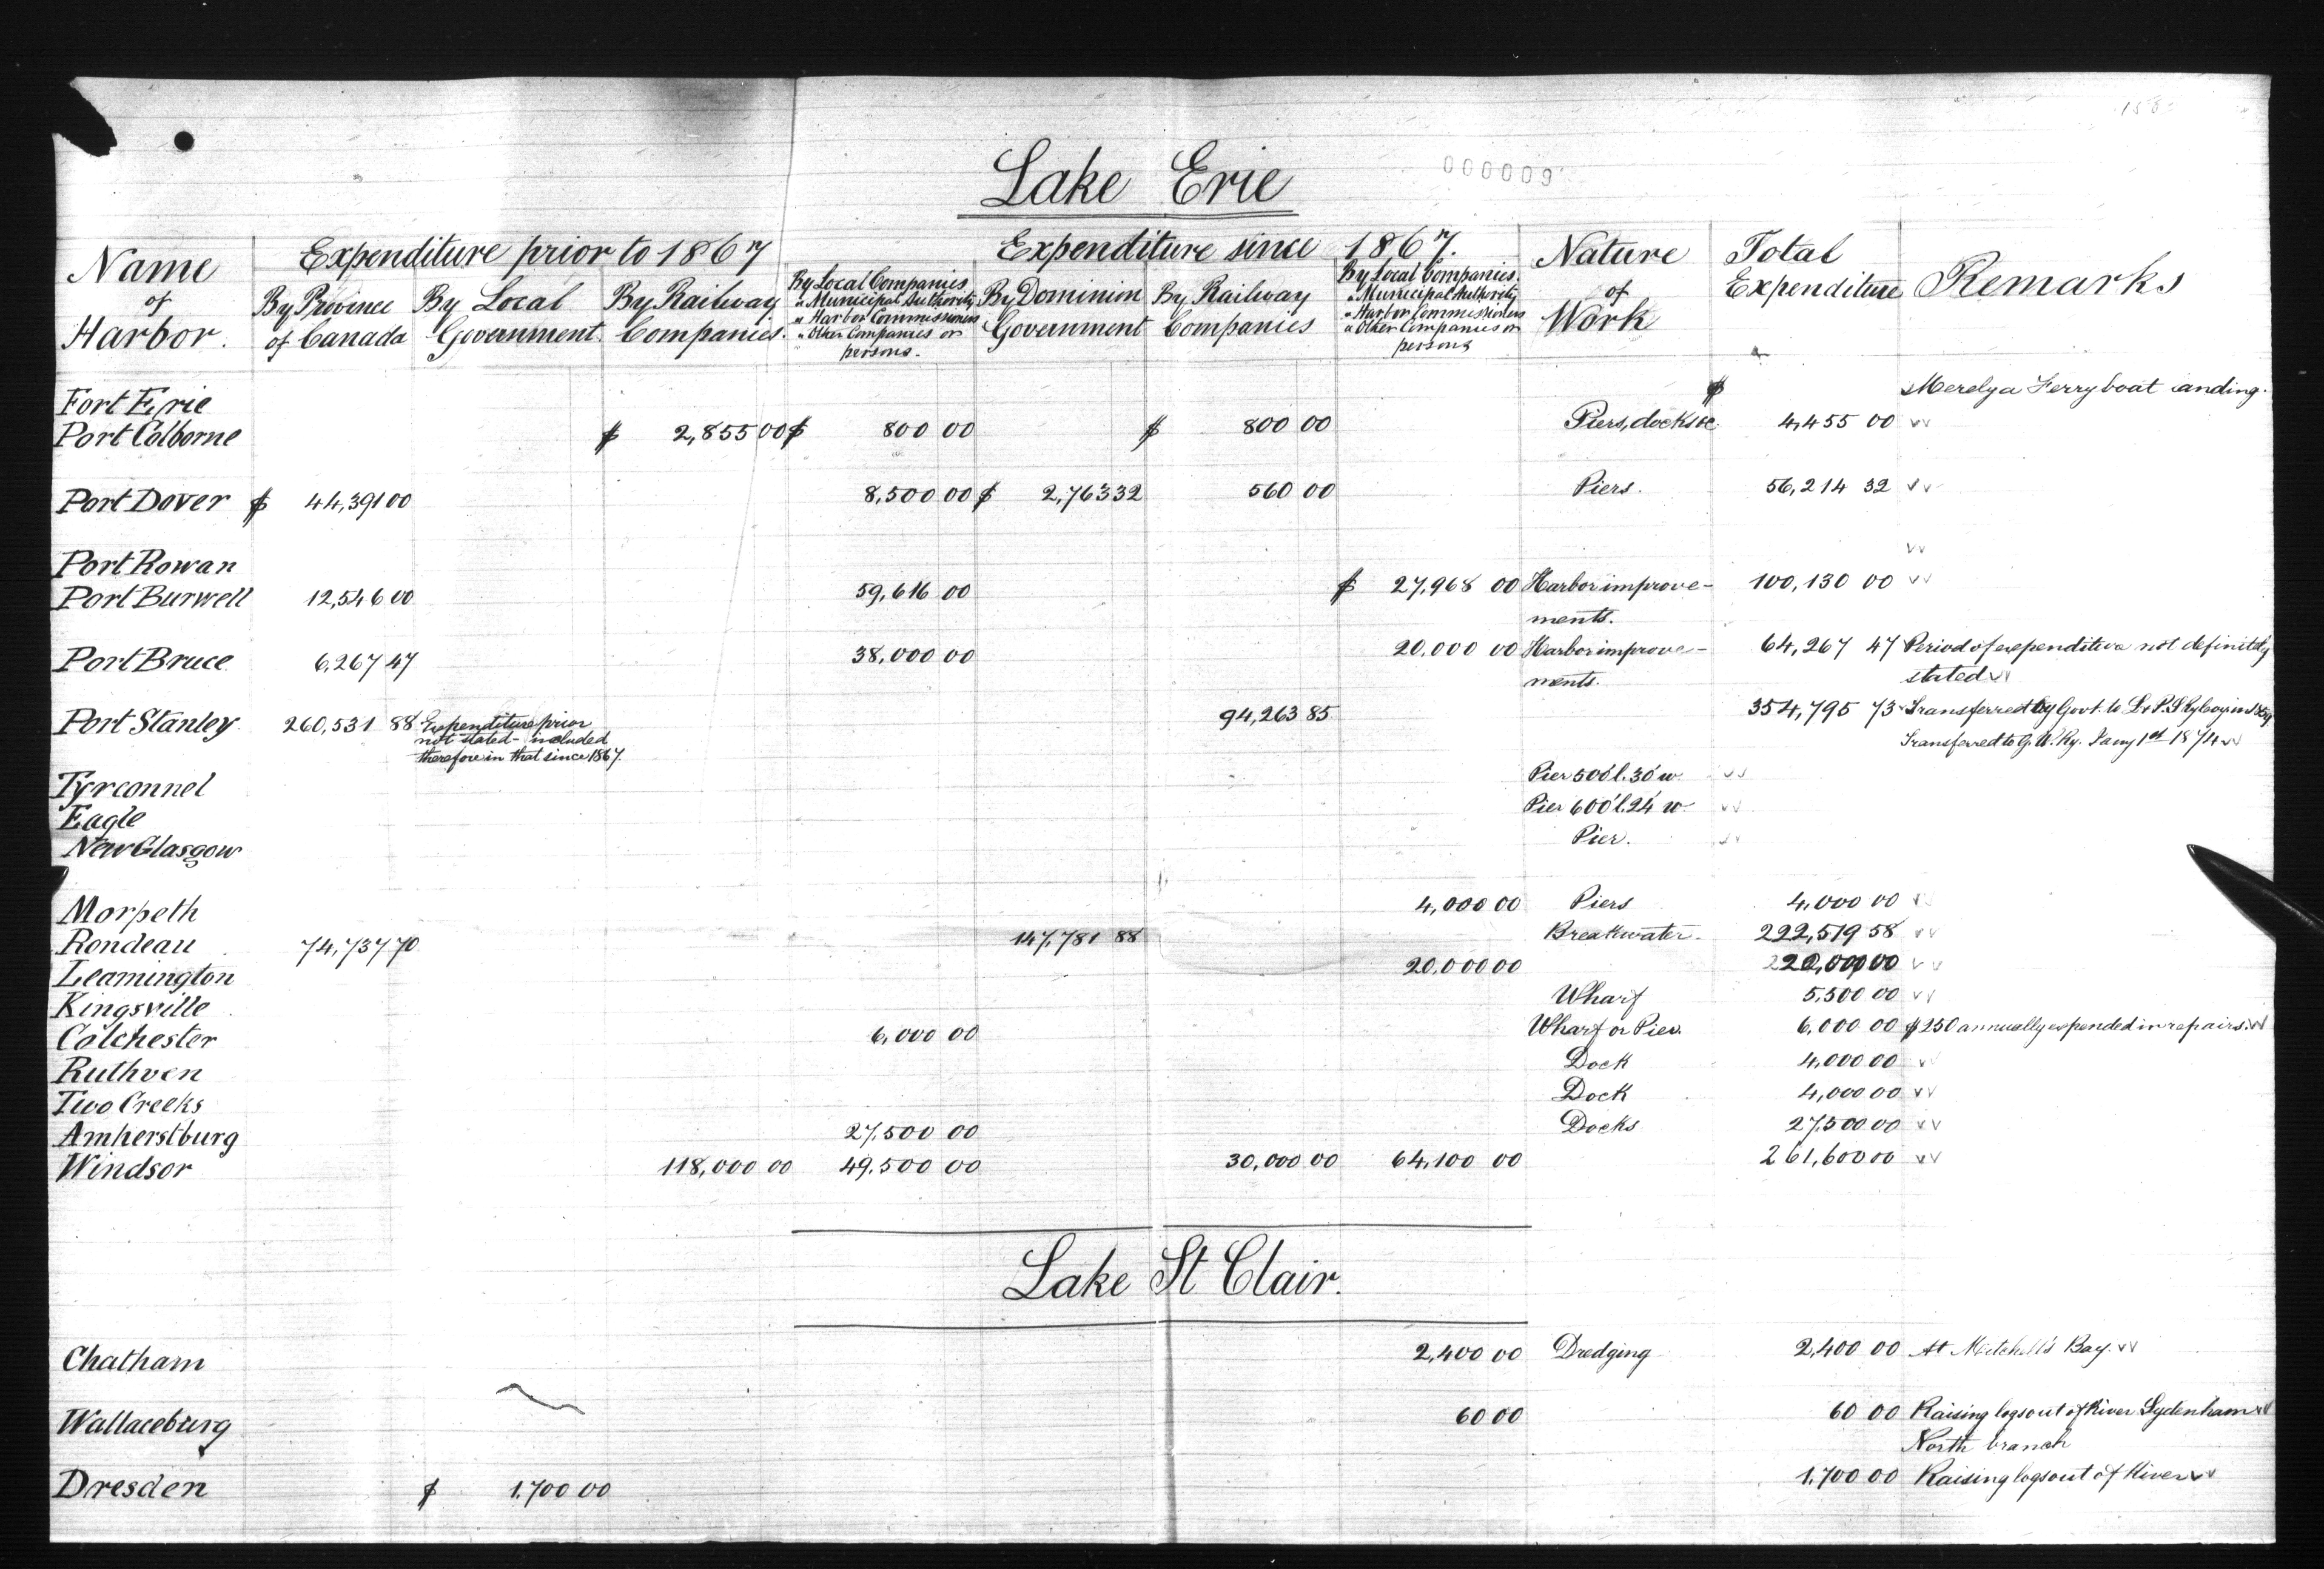 158
000009
Lake Erie
Name of Harbor. | Expenditure prior to 1867 | Expenditure since 1867. | Nature of Work | Total Expenditure | Remarks
By Province of Canada | By Local Government. | By Railway Companies. | By Local Companies " Municipal Authority " Harbor Commissioners " Other Companies or persons. | By Dominion Government | By Railway Companies | By Local Companies. " Municipal Authority " Harbor Commissioners " Other Companies or persons
Fort Erie $ Merely a Ferry boat landing.
Port Colborne $ 2,855 00 $ 800 00 $ 800 00 Piers, docks &c. 4,455 00
Port Dover $ 44,391 00 8,500 00 $ 2,763 32 560 00 Piers. 56,214 32
Port Rowan
Port Burwell 12,546 00 59,616 00 $ 27,968 00 Harbor improve- 100,130 00
ments.
Port Bruce 6,267 47 38,000 00 20,000 00 Harbor improve- 64,267 47 Period of expenditure not definitely
ments. stated
Port Stanley 260,531 88 Expenditure prior 94,263 85 354,795 73 Transferred by Govt. to L & P.S Ry Coy in 1859
not stated - included Transferred to G. W. Ry. Jany 1st 1874
therefore in that since 1867.
Tyrconnel Pier 500' l. 30' w.
Eagle Pier 600' l. 24' w.
New Glasgow Pier.
Morpeth 4,000 00 Piers 4,000 00
Rondeau 74,737 70 147,781 88 Breakwater. 222,519 58
Leamington 20,000 00 20,000 00
Kingsville Wharf 5,500 00
Colchester 6,000 00 Wharf or Pier. 6,000 00 $250 annually expended in repairs.
Ruthven Dock 4,000 00
Two Creeks Dock 4,000 00
Amherstburg 27,500 00 Docks 27,500 00
Windsor 118,000 00 49,500 00 30,000 00 64,100 00 261,600 00
Lake St Clair.
Chatham 2,400 00 Dredging 2,400 00 At Mitchell's Bay.
Wallaceburg 60 00 60 00 Raising logs out of River Sydenham
North branch
Dresden $ 1,700 00 1,700 00 Raising logs out of River